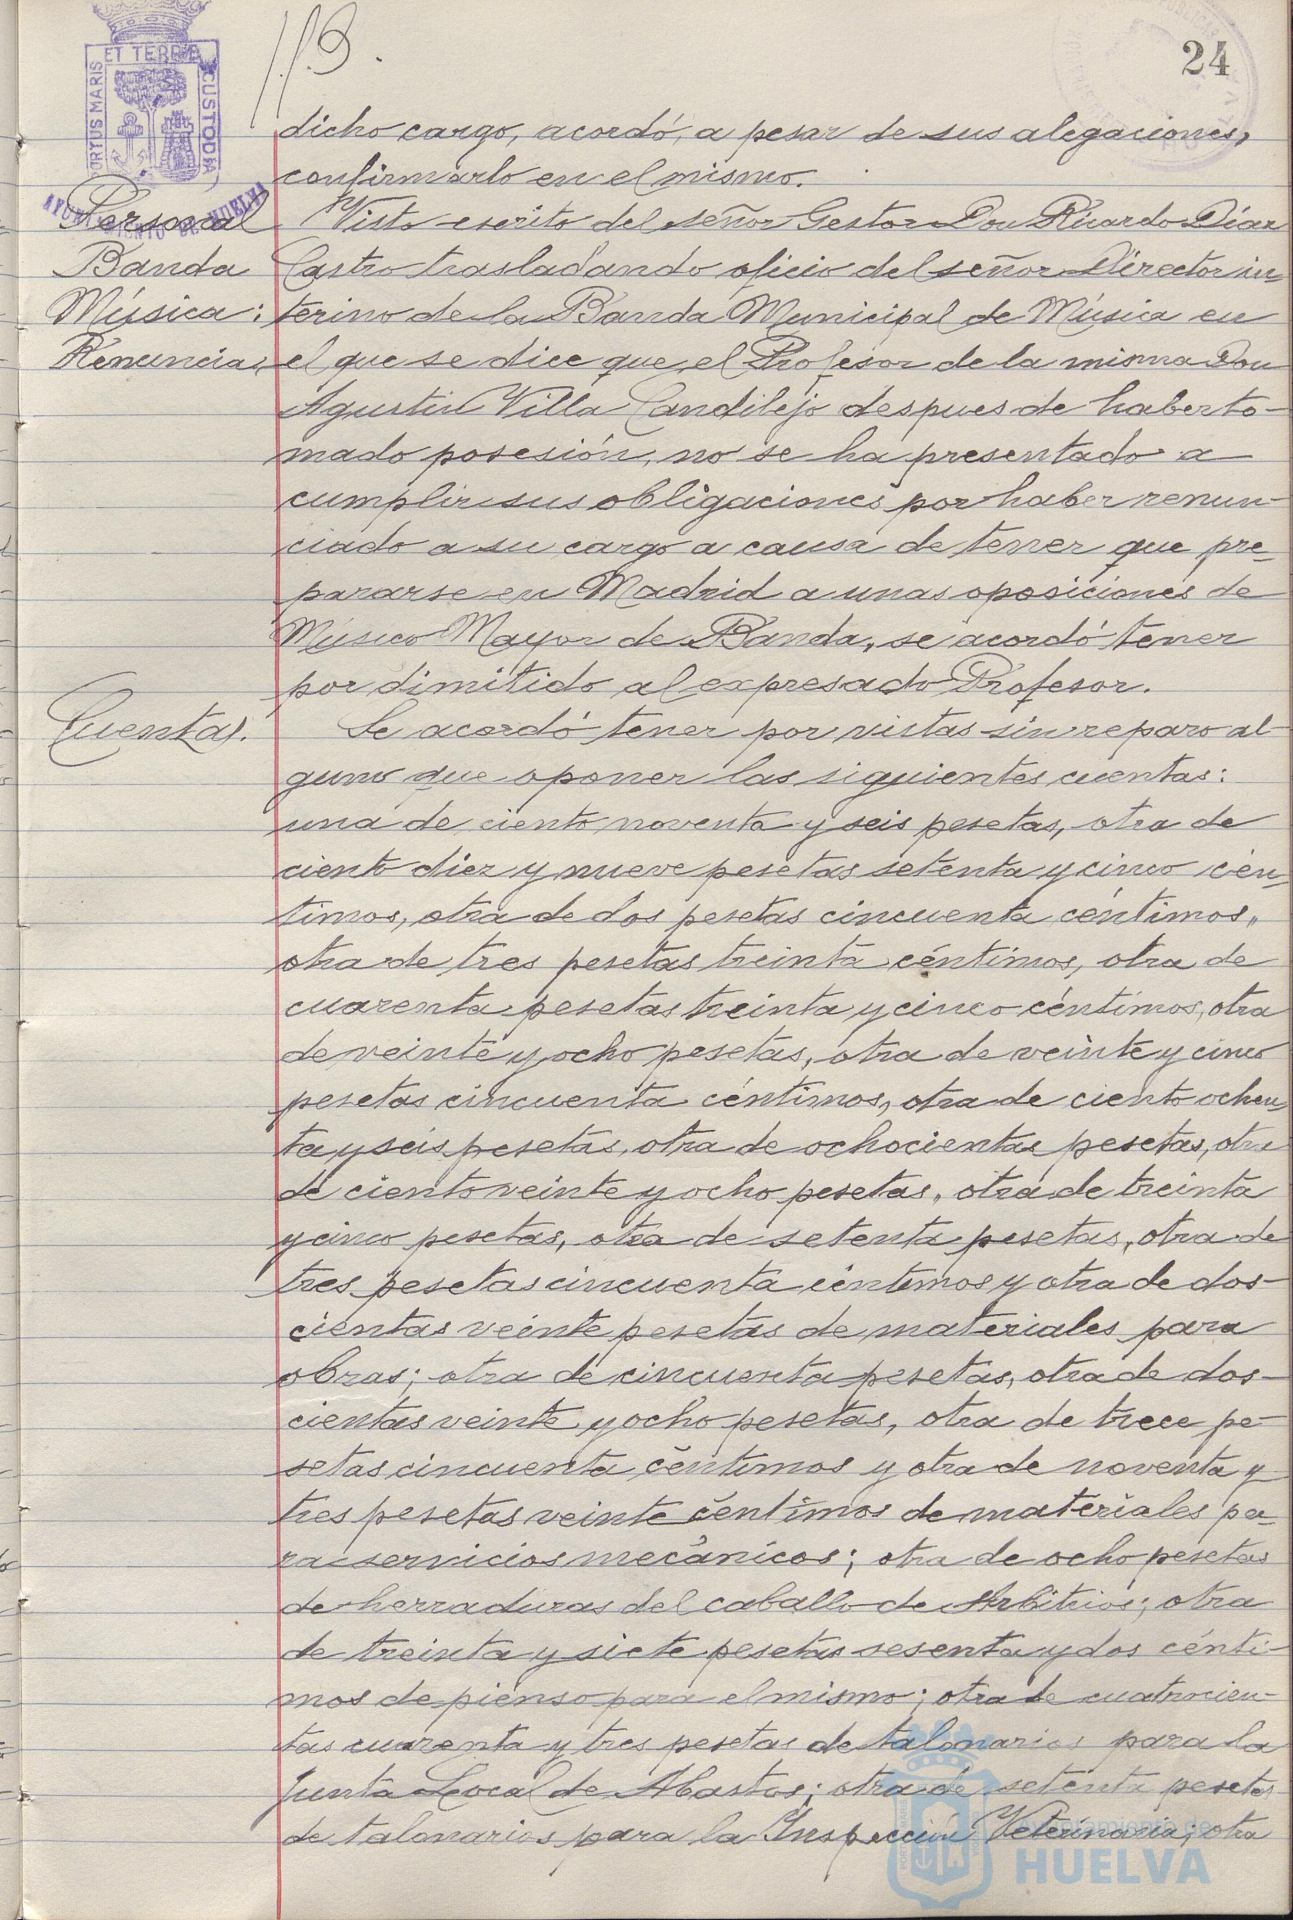 24
PORTUS MARIS ET TERRE CUSTODIA
AYUNTAMIENTO DE HUELVA
dicho cargo, acordó, a pesar de sus alegaciones,
confirmarlo en el mismo.
Personal
Banda
Música:
Renuncia.
Visto escrito del señor Gestor Don Ricardo Díaz
Castro trasladando oficio del señor Director in-
terino de la Banda Municipal de Música en
el que se dice que el Profesor de la misma Don
Agustin Villa Candilejo despues de haber to-
mado posesión, no se ha presentado a
cumplir sus obligaciones por haber renun-
ciado a su cargo a causa de tener que pre-
pararse en Madrid a unas oposiciones de
Músico Mayor de Banda, se acordó tener
por dimitido al expresado Profesor.
Cuentas.
Se acordó tener por vistas sin reparo al-
guno que oponer las siguientes cuentas:
una de ciento noventa y seis pesetas, otra de
ciento diez y nueve pesetas setenta y cinco cén-
timos, otra de dos pesetas cincuenta céntimos,
otra de tres pesetas treinta céntimos, otra de
cuarenta pesetas treinta y cinco céntimos, otra
de veinte y ocho pesetas, otra de veinte y cinco
pesetas cincuenta céntimos, otra de ciento ochen-
ta y seis pesetas, otra de ochocientas pesetas, otra
de ciento veinte y ocho pesetas, otra de treinta
y cinco pesetas, otra de setenta pesetas, otra de
tres pesetas cincuenta céntimos y otra de dos-
cientas veinte pesetas de materiales para
obras; otra de cincuenta pesetas, otra de dos-
cientas veinte y ocho pesetas, otra de trece pe-
setas cincuenta céntimos y otra de noventa y
tres pesetas veinte céntimos de materiales pa-
ra servicios mecánicos; otra de ocho pesetas
de herraduras del caballo de Arbitrios; otra
de treinta y siete pesetas sesenta y dos cénti-
mos de pienso para el mismo; otra de cuatrocien-
tas cuarenta y tres pesetas de talonarios para la
Junta Local de Abastos; otra de setenta pesetas
de talonarios para la Inspeccion Veterinaria; otra
Ayuntamiento de
HUELVA